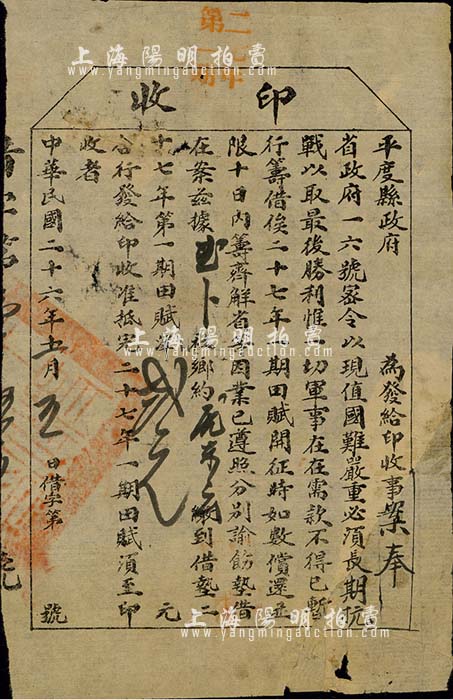 第二
上海陽明拍賣
www.yangmingauction.com
收印
平度縣政府 為發給印收事案奉
省政府一六號密令以現值國難嚴重必須長期抗
戰以取最後勝利惟一切軍事在在需款不得已暫
行籌借俟二十七年一期田賦開征時如數償還並
限十日內籌齊解省等因業已遵照分別諭飭墊借
在案茲據 卜 社鄉約 繳到借墊二
十七年第一期田賦洋 元
合行發給印收准抵完二十七年一期田賦須至印
收者
中華民國二十六年 月 五 日借字第 號
上海陽明拍賣
www.yangmingauction.com
上海陽明拍賣
www.yangmingauction.com